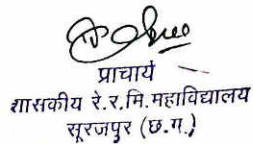 प्राचार्य
शासकीय रे.र.मि.महाविद्यालय
सूरजपुर (छ.ग.)